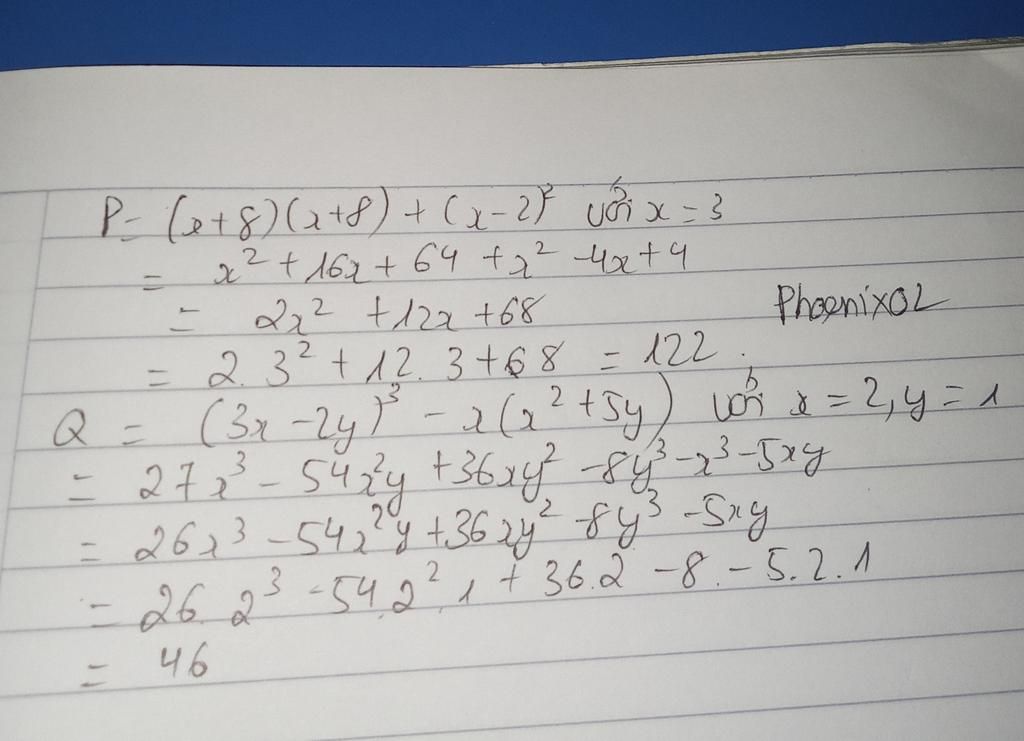 P = (x+8)(x+8) + (x-2)² với x = 3
= x² + 16x + 64 + x² - 4x + 4
= 2x² + 12x + 68
PhoenixOL
= 2. 3² + 12. 3 + 68 = 122.
Q = (3x - 2y)³ - x(x² + 5y) với x = 2, y = 1
= 27x³ - 54x²y + 36xy² - 8y³ - x³ - 5xy
= 26x³ - 54x²y + 36xy² - 8y³ - 5xy
= 26. 2³ - 54. 2². 1 + 36.2 - 8. - 5. 2. 1
= 46